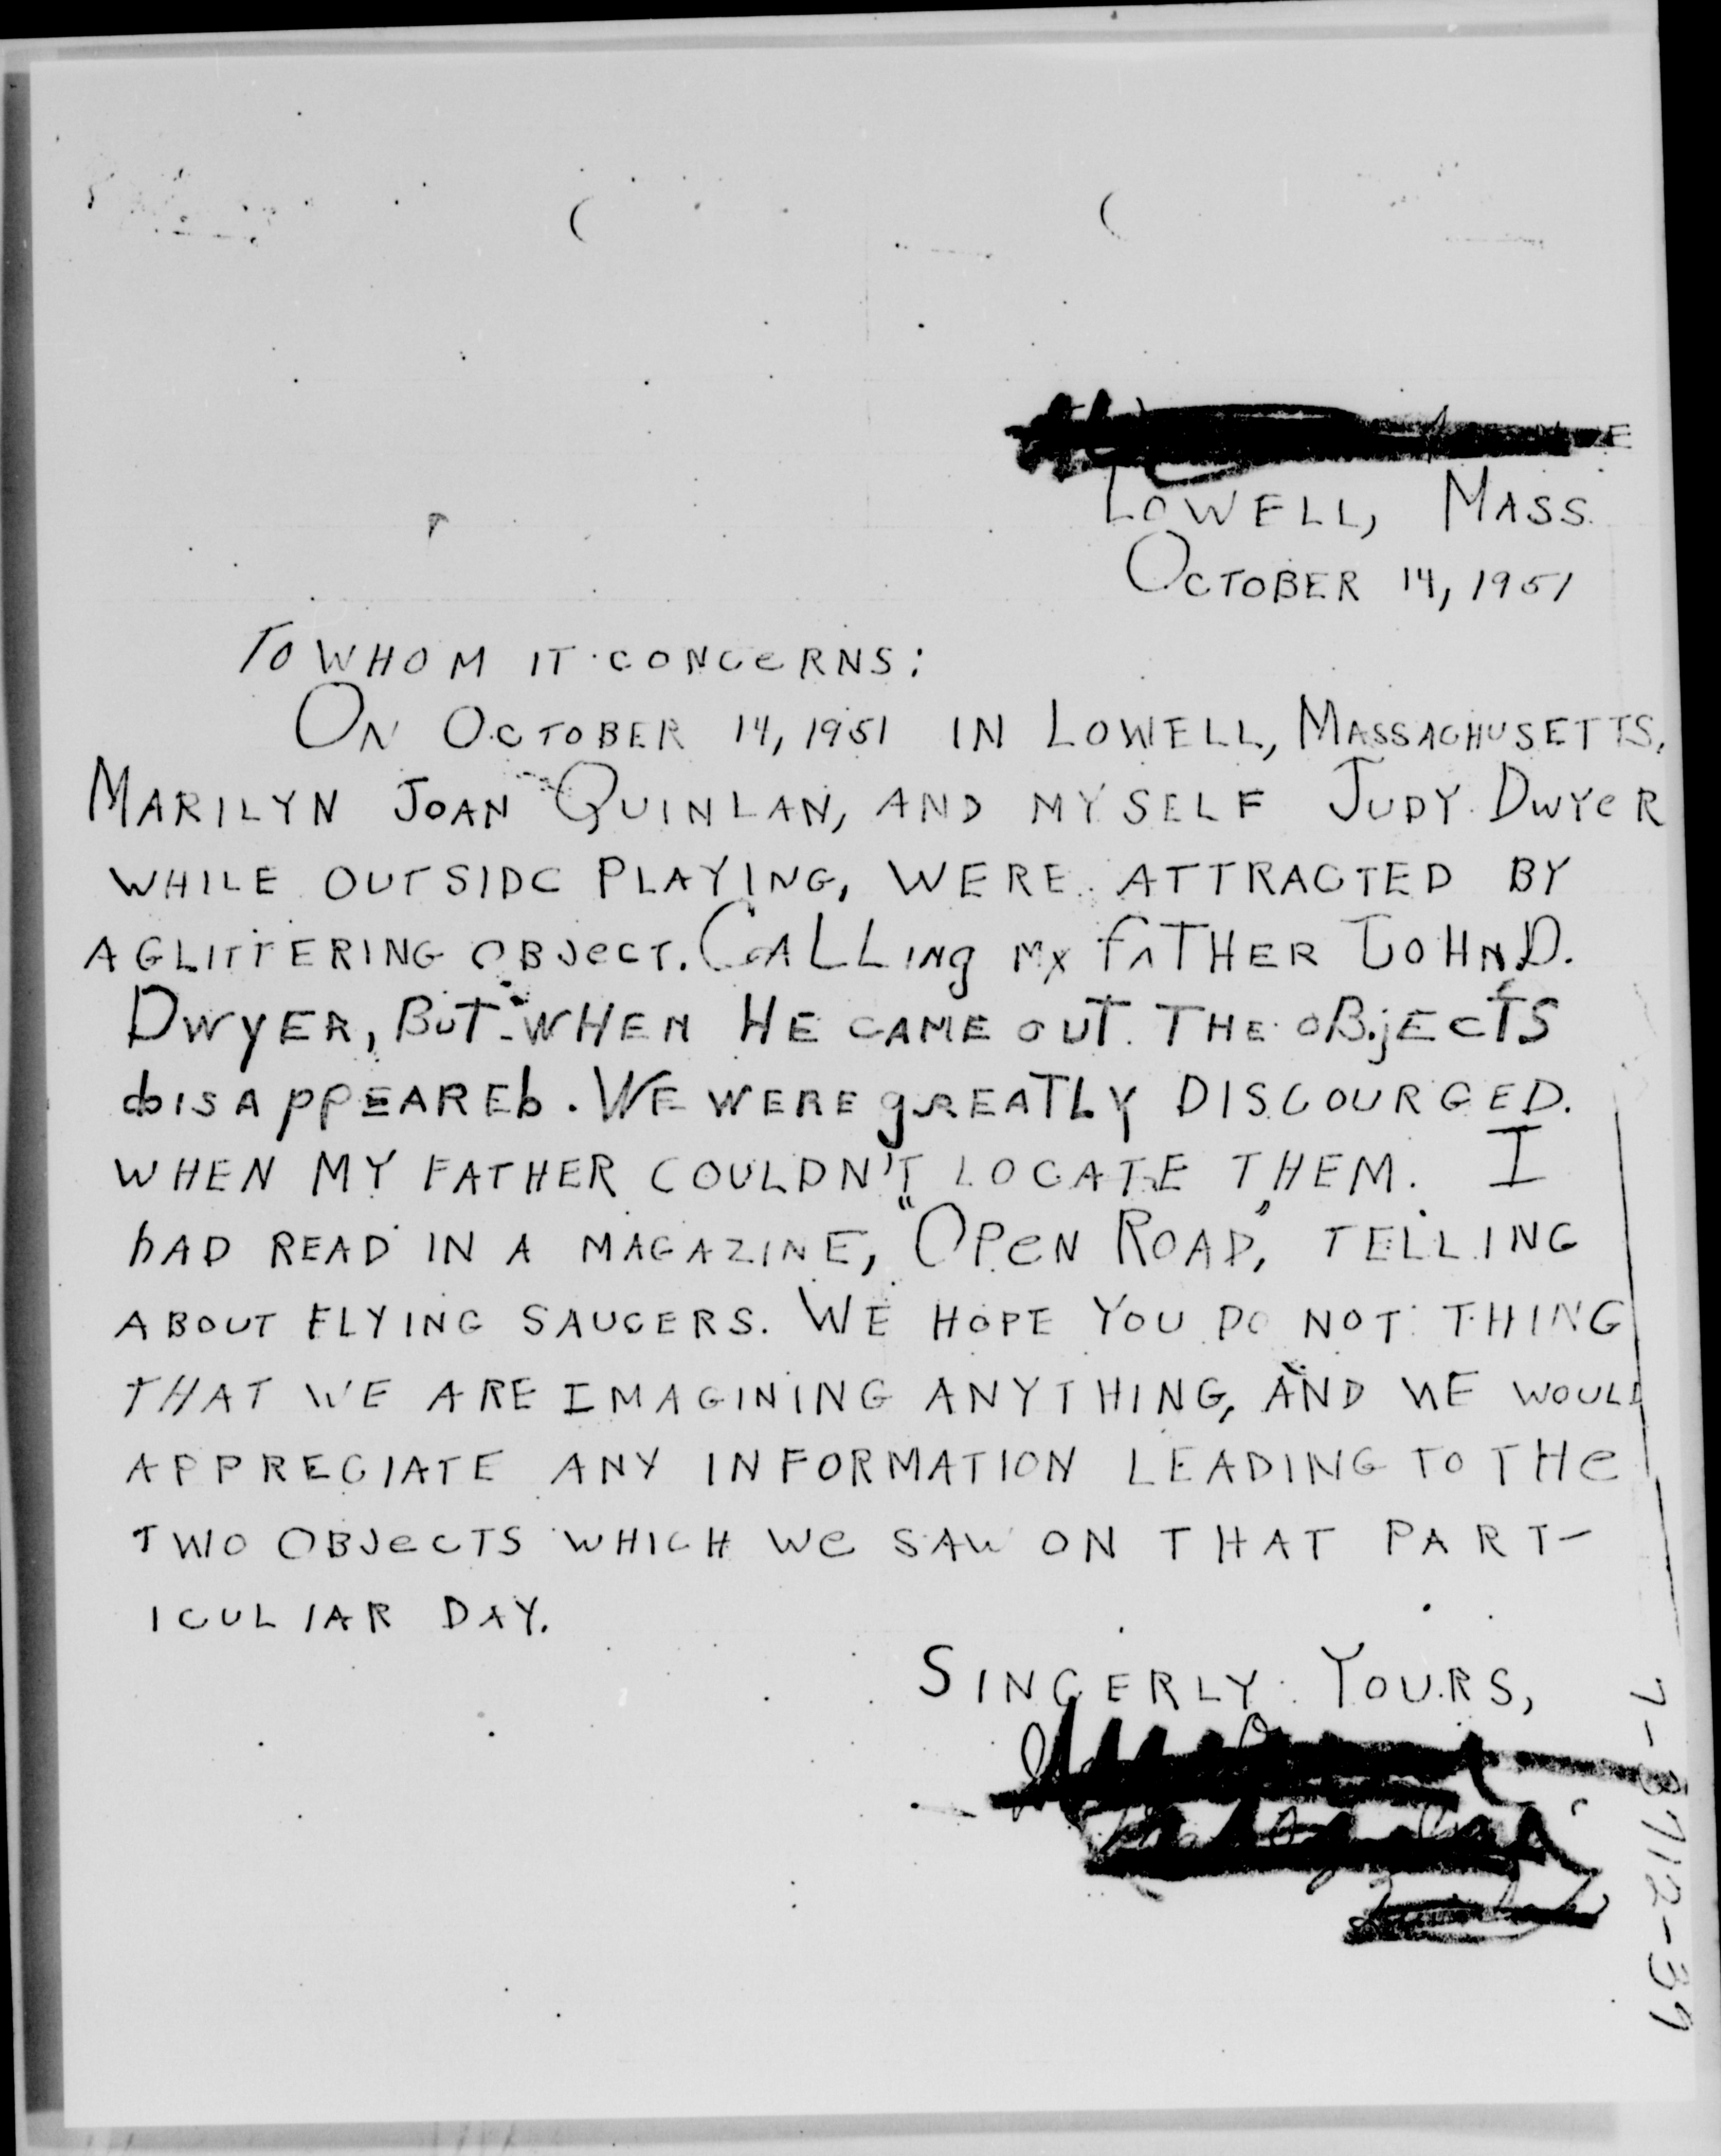 LOWELL, MASS.
OCTOBER 14, 1951
TO WHOM IT CONCERNS:
ON OCTOBER 14, 1951 IN LOWELL, MASSACHUSETTS,
MARILYN JOAN QUINLAN, AND MYSELF JUDY DWYER
WHILE OUTSIDE PLAYING, WERE ATTRACTED BY
A GLITTERING OBJECT. CALLING MY FATHER JOHN D.
DWYER, BUT WHEN HE CAME OUT THE OBJECTS
DISAPPEARED. WE WERE GREATLY DISCOURGED.
WHEN MY FATHER COULDN'T LOCATE THEM. I
HAD READ IN A MAGAZINE, "OPEN ROAD," TELLING
ABOUT FLYING SAUCERS. WE HOPE YOU DO NOT THING
THAT WE ARE IMAGINING ANYTHING, AND WE WOULD
APPRECIATE ANY INFORMATION LEADING TO THE
TWO OBJECTS WHICH WE SAW ON THAT PART-
ICULIAR DAY.
SINCERLY YOURS,
7-3712-39